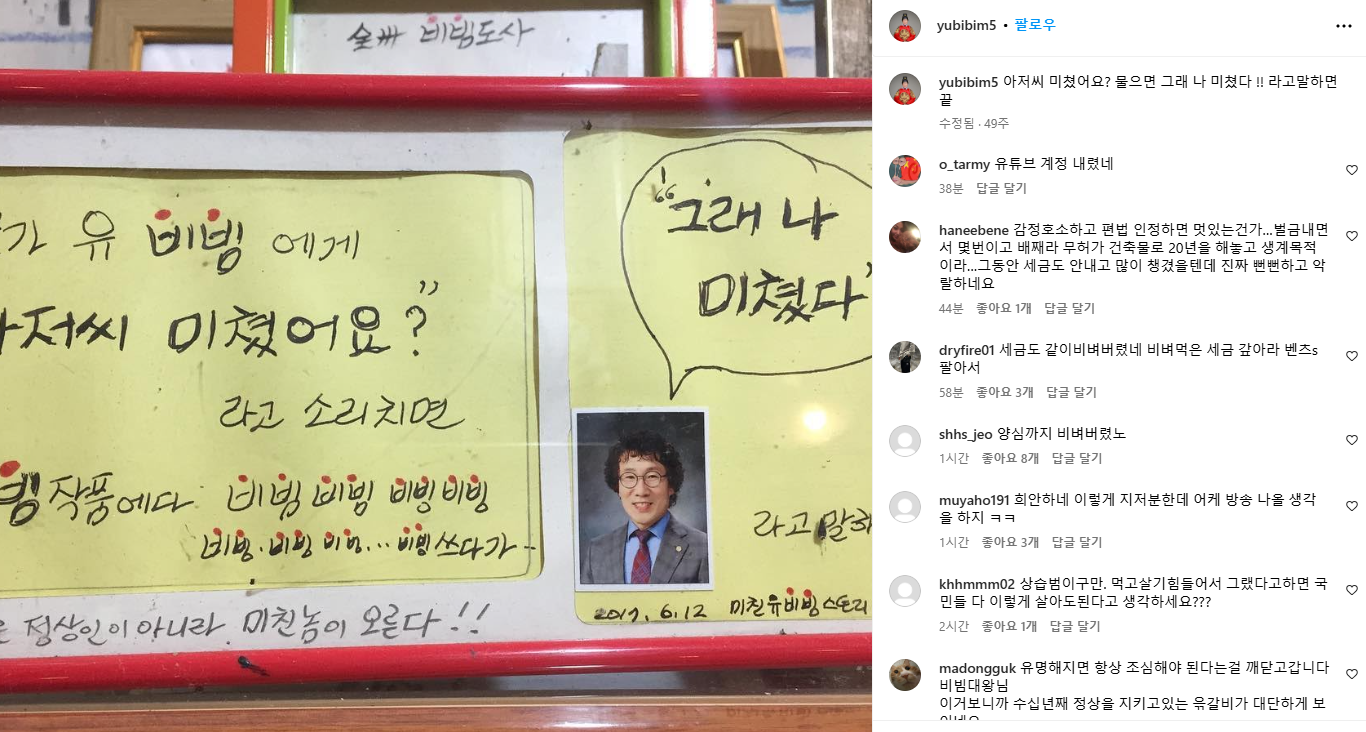 全州 비빔도사
가 유 비빔 에게
저씨 미쳤어요?"
라고 소리치면
빔 작품에다 비빔 비빔 비빙 비빙
비빙·비빙 비빙... 비빙 쓰다가..
정상인이 아니라 미친놈이 오른다!!
"그래 나
미쳤다"
라고 말하
2017, 6.12 미친유비빔스토리
yubibim5 • 팔로우
yubibim5 아저씨 미쳤어요? 물으면 그래 나 미쳤다 !! 라고말하면
끝
수정됨 · 49주
o_tarmy 유튜브 계정 내렸네
38분 답글 달기
haneebene 감정호소하고 편법 인정하면 멋있는건가...벌금내면
서 몇번이고 배째라 무허가 건축물로 20년을 해놓고 생계목적
이라...그동안 세금도 안내고 많이 챙겼을텐데 진짜 뻔뻔하고 악
랄하네요
44분 좋아요 1개 답글 달기
dryfire01 세금도 같이비벼버렸네 비벼먹은 세금 갚아라 벤츠s
팔아서
58분 좋아요 3개 답글 달기
shhs_jeo 양심까지 비벼버렸노
1시간 좋아요 8개 답글 달기
muyaho191 희안하네 이렇게 지저분한데 어케 방송 나올 생각
을 하지 ㅋㅋ
1시간 좋아요 3개 답글 달기
khhmmm02 상습범이구만. 먹고살기힘들어서 그랬다고하면 국
민들 다 이렇게 살아도된다고 생각하세요???
2시간 좋아요 1개 답글 달기
madongguk 유명해지면 항상 조심해야 된다는걸 깨닫고갑니다
비빔대왕님
이거보니까 수십년째 정상을 지키고있는 윾갈비가 대단하게 보